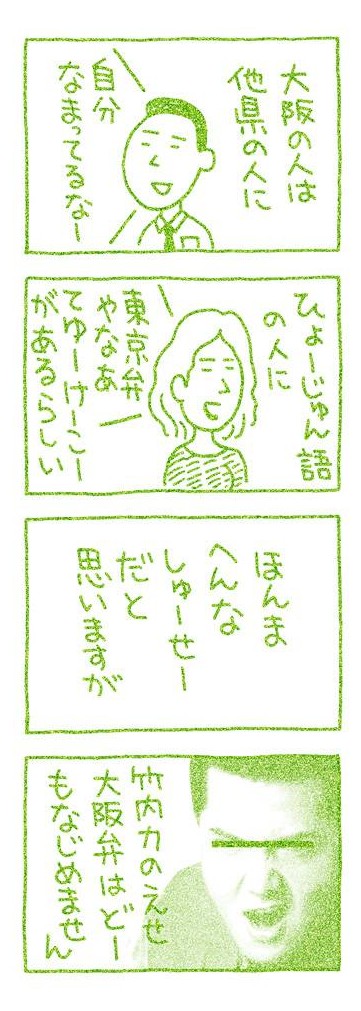 大阪の人は
他県の人に
自分
なまってるなー
ひょーじゅん語
の人に
東京弁
やなあ
てゆーけーこー
があるらしい
ほんま
へんな
しゅーせー
だと
思いますが
竹内力のえせ
大阪弁はどー
もなじめません